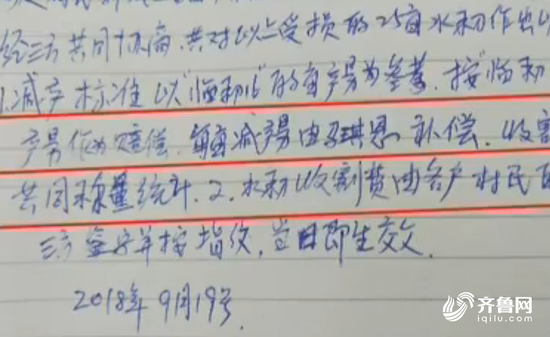 经三方共同协商,共对以上受损的25亩水稻作出以
1.减产标准以"临稻16"的亩产易为参考,按"临稻
产易作为赔偿,每亩减产易由琪恩补偿,收割
共同称量统计.2.水稻收割费由各户村民自
三方签字并按指纹,当日即生效.
2018年9月19号.
齐鲁网
iqilu.com